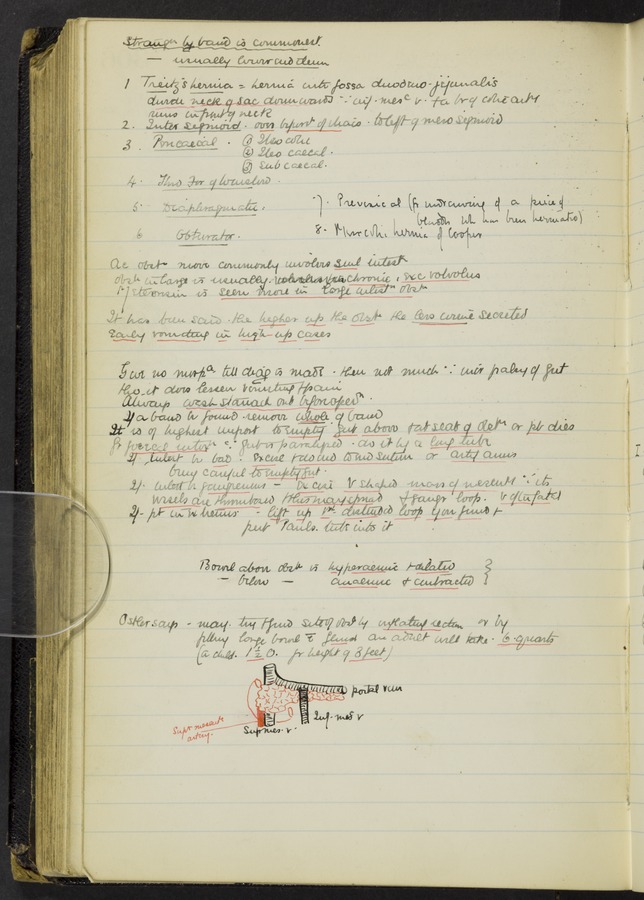 Strangⁿ by band is commonest.
— usually lower end ileum
1 Treitz's hernia = hernia into fossa duodeno-jejunalis
neck of sac downwards ∵ inf. mesᶜ v. + a br of colic art
runs in front of neck
2. Inter sigmoid. over bifurⁿ of iliacs. to left of meso sigmoid
3. Pericaecal. ① Ileo colic
② Ileo caecal.
③ Sub caecal.
4. Thro For of Winslow.
5. Diaphragmatic.
6 Obturator.
7. Prevesical (fr undrawing of a piece of
bladder wh has been herniated)
8. hernia of Cooper
Ac obstⁿ more commonly involves small intest
obstⁿ in large is usually chronic, exc volvulus
is seen more in large intestⁿ obstⁿ
It has been said the higher up the obstⁿ the less urine secreted
Early vomiting in high-up cases
Give no morpᵃ till diag is made. then not much ∵ incr paley of gut
tho it does lessen vomiting & pain
Always wash stomach out before opⁿ.
If a band be found remove whole of band
It is of highest import to empty gut above & at seat of obstⁿ or pt dies
fr faecal intoxⁿ ∵ gut is paralysed. do it by a long tube
If intest be bad. Excise & end to end suture or artif anus
being careful to empty gut.
If intest is gangrenous — Excise V shaped mass of mesent ∵ its
vessels are thrombosed & this may spread & gangr loop.
If pt in extremis — lift up 1ˢᵗ distended loop you find &
put Pauls tube into it
Bowel above obstⁿ is hyperaemic & dilated }
— below — anaemic & contracted }
Osler says — may try & find site of obst by inflating rectum or by
filling large bowel c̄ fluid an adult will take 6 quarts
(a child. fr height of 3 feet)
portal vein
Supr mesentc
artery.
Sup mes. v.
Inf. mes v